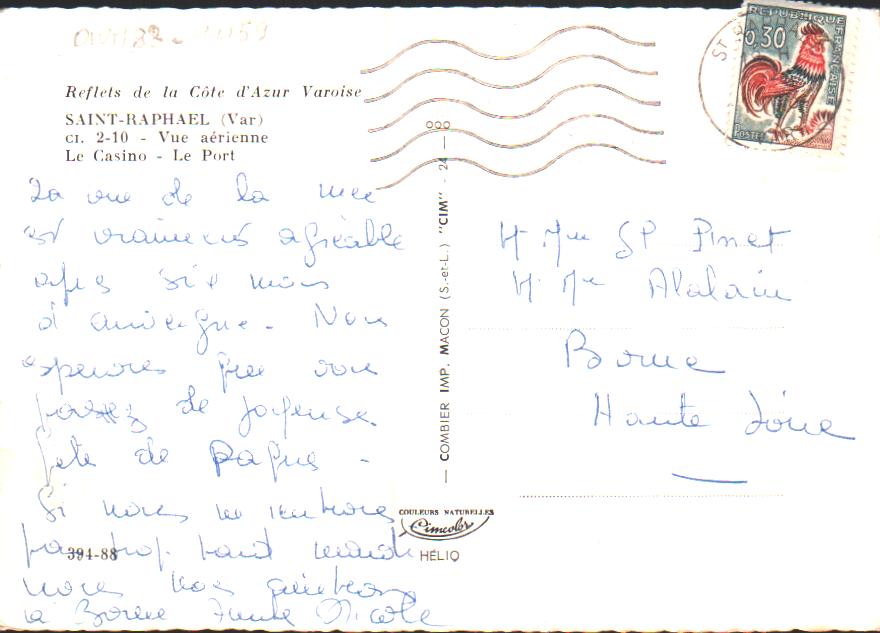 Reflets de la Côte d'Azur Varoise
SAINT-RAPHAEL (Var)
CI. 2-10 - Vue aérienne
Le Casino - Le Port
La vue de la mer
est vraiment agréable
après six mois
d'auvergne - Nous
espérons que vous
passez de joyeuses
fête de Pâques -
Si nous ne rentrons
pas trop tard mardi
nous nous arrêterons
à Borne Nicole
394-88
COMBIER IMP. MACON (S.-et-L.) "CIM" - 24 -
COULEURS NATURELLES
Cimcolor
HÉLIO
RÉPUBLIQUE FRANÇAISE
0,30
POSTES
ST
M. Me Pinet
M. Me
Borne
Haute Loire